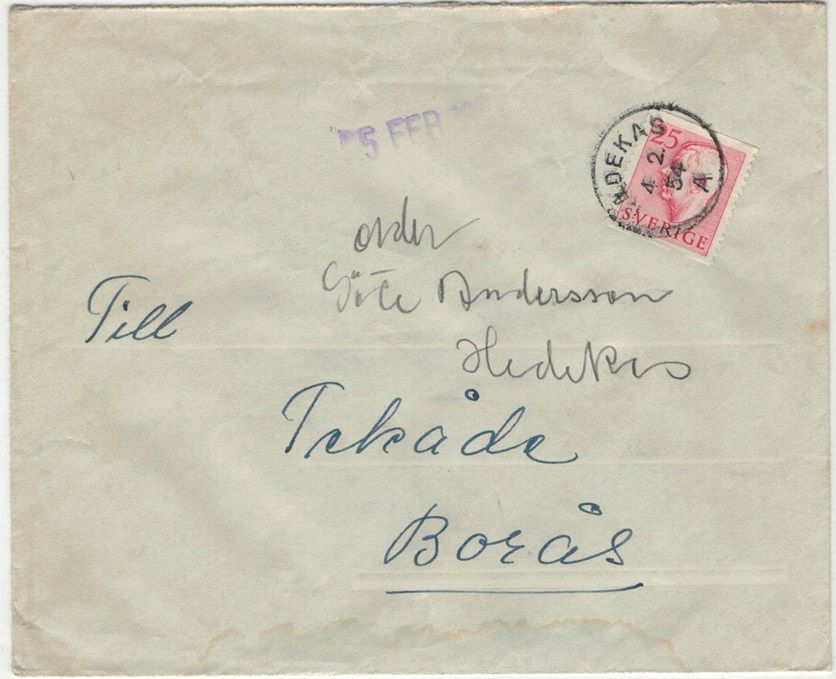 5 FEB
HEDEKAS
4 2
54
A
25
SVERIGE
order
Göte Andersson
Hedekas
Till
Tekåde
Borås